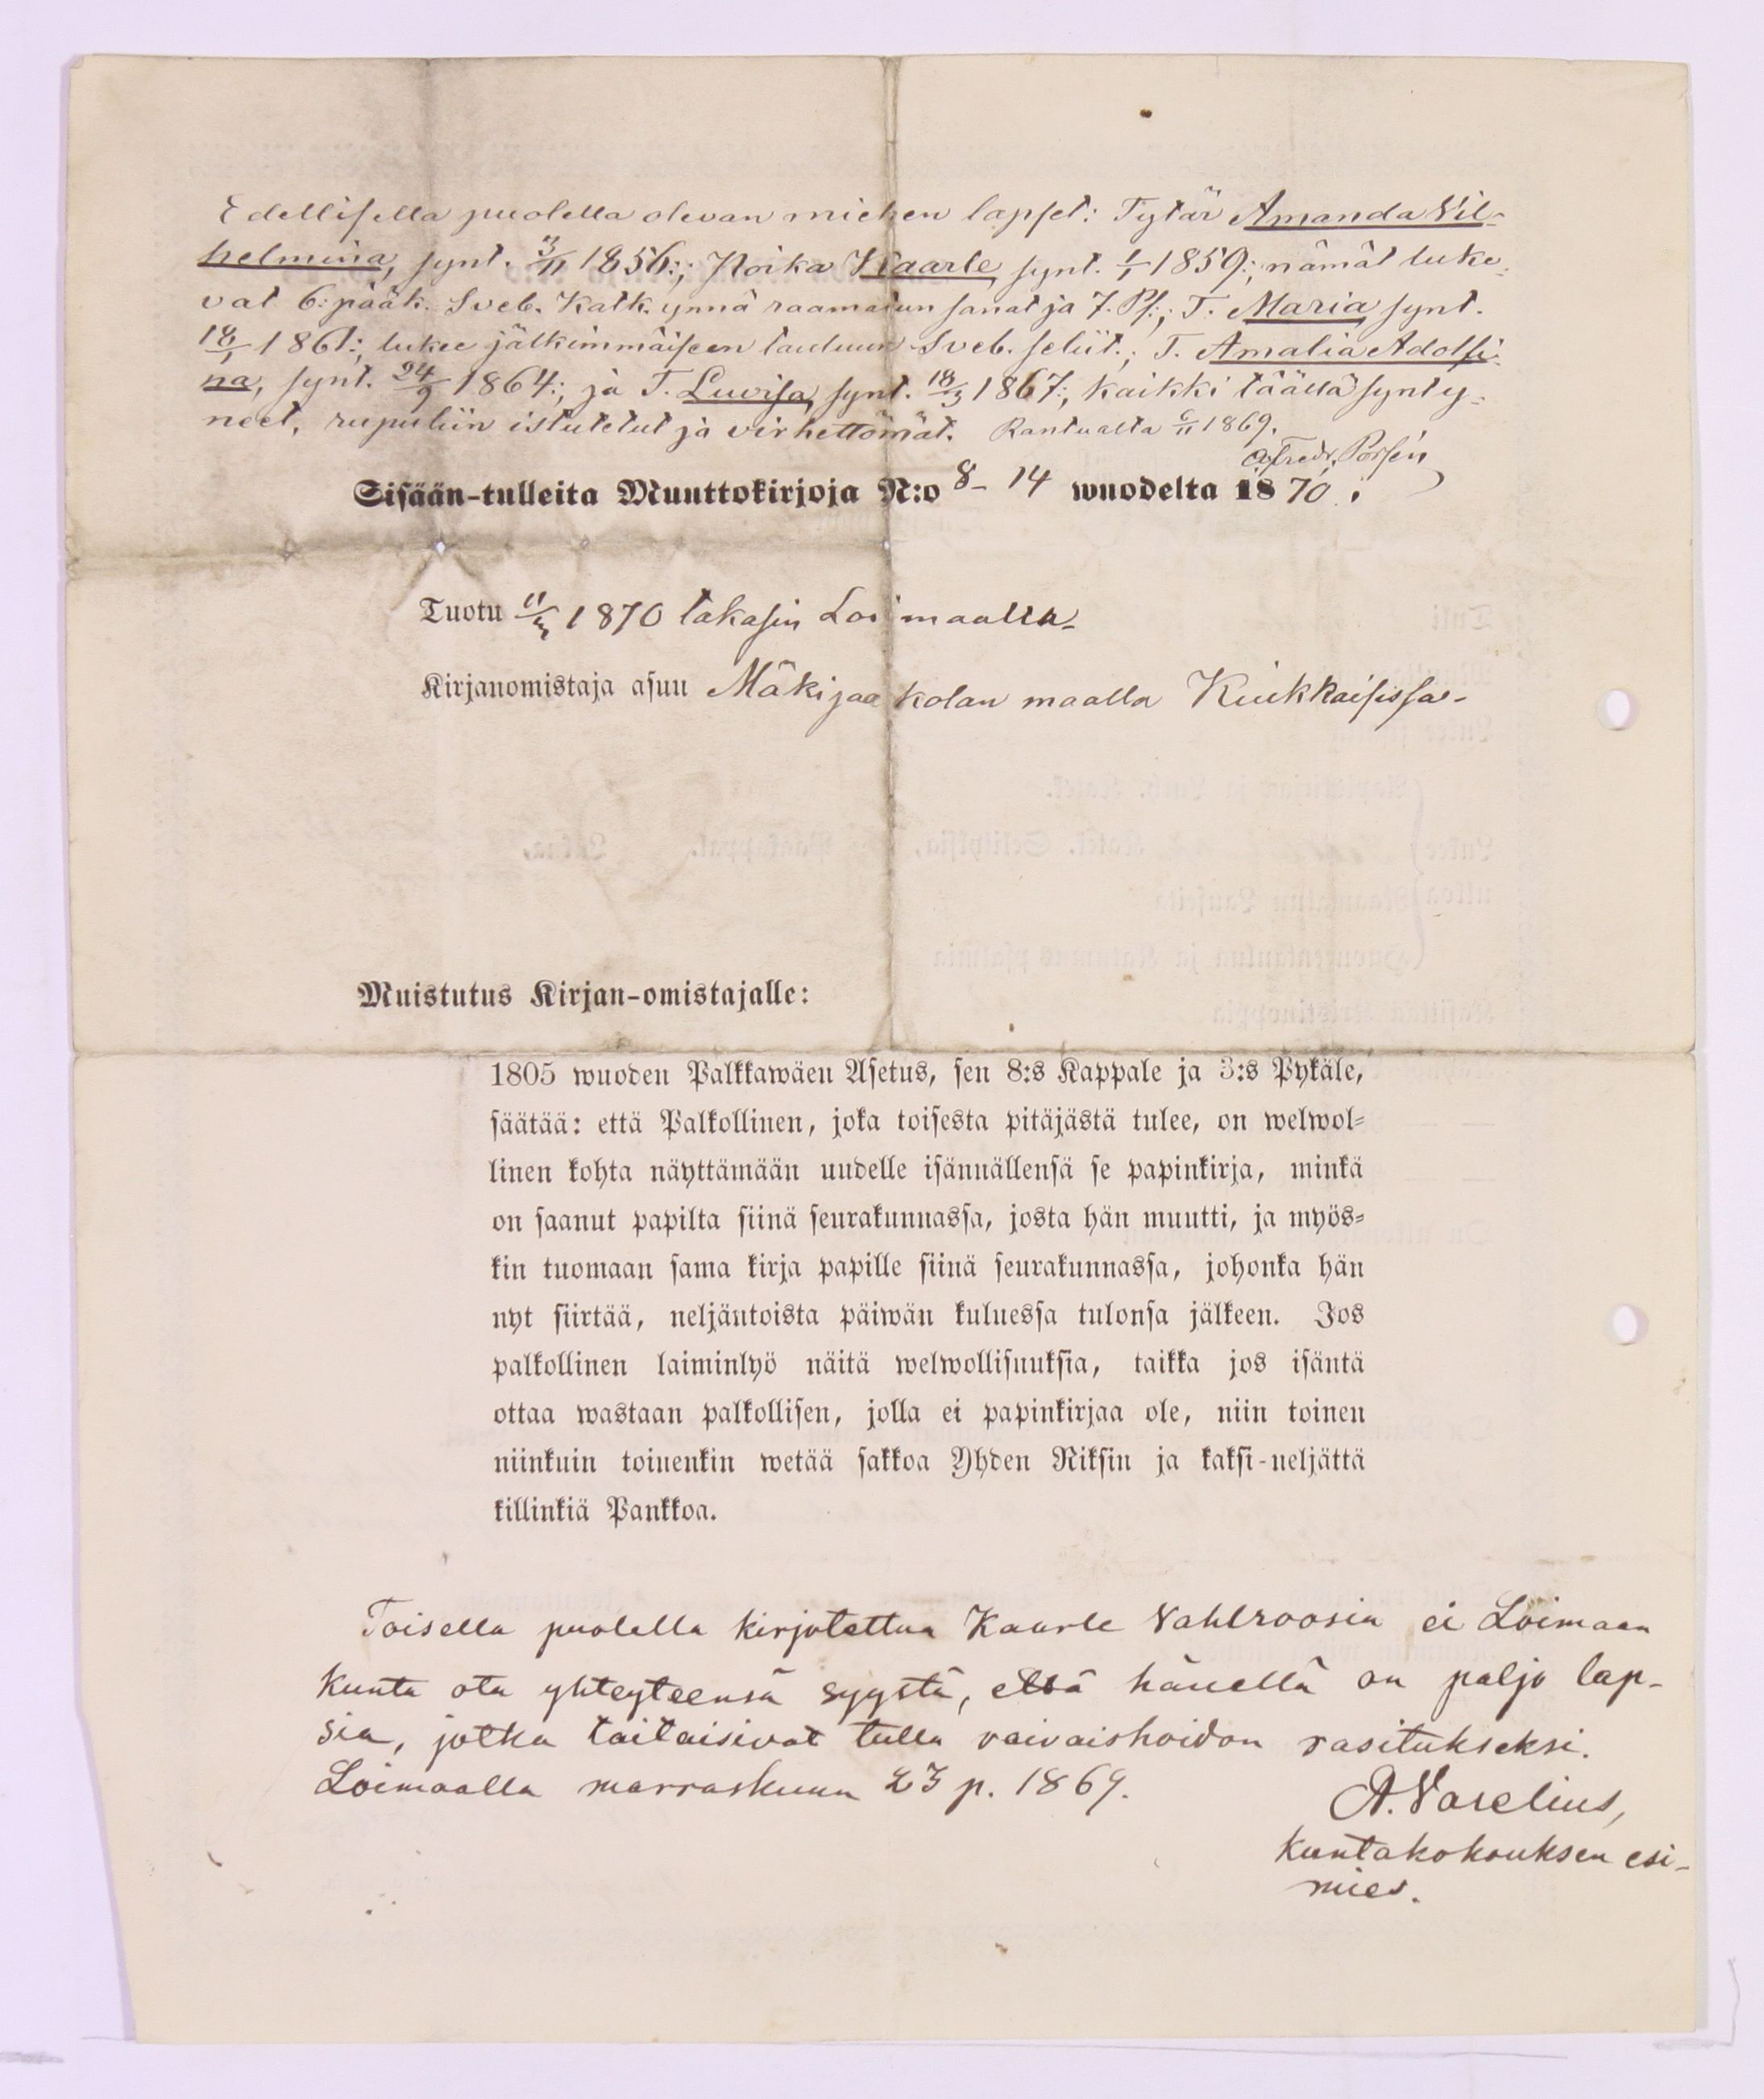 Edellisella puolella olevan miehen lapset: Tytär Amanda Vil-
helmina, synt. 3/11 1856:; Poika Kaarle, synt. 1/1 1859:; nämät luke-
vat 6: pääk. Sveb. Katk. ynnä raamatun sanat ja 7. Ps:; T. Maria synt.
18/1 1861:, lukee jälkimmäiseen tauluun Sveb. seliit.; T. Amalia Adolfi-
na, synt. 24/9 1864:; ja T. Luvisa, synt. 18/3 1867:, kaikki täällä synty-
neet, rupuliin istutetut ja virhettömät. Kantualta 6/11 1869.
Alfredr. Porsén
Sisään-tulleita Muuttokirjoja N:o 8-14 wuodelta 1870.
Tuotu 11/3 1870 takasin Loimaalta-
Kirjanomistaja asuu Mäkijaakolan maalla Kiukkaisissa-
Muistutus Kirjan-omistajalle:
1805 wuoden Palkkawäen Asetus, sen 8:s Kappale ja 3:s Pykäle,
säätää: että Palkollinen, joka toisesta pitäjästä tulee, on welwol-
linen kohta näyttämään uudelle isännällensä se papinkirja, minkä
on saanut papilta siinä seurakunnassa, josta hän muutti, ja myös-
kin tuomaan sama kirja papille siinä seurakunnassa, johonka hän
nyt siirtää, neljäntoista päiwän kuluessa tulonsa jälkeen. Jos
palkollinen laiminlyö näitä welwollisuuksia, taikka jos isäntä
ottaa wastaan palkollisen, jolla ei papinkirjaa ole, niin toinen
niinkuin toinenkin wetää sakkoa Yhden Riksin ja kaksi-neljättä
killinkiä Pankkoa.
Toisella puolella kirjotettua Kaarle Vahlroosia ei Loimaan
kunta ota yhteyteensä syystä, että hänellä on paljo lap-
sia, jotka taitaisivat tulla vaivaishoidon rasitukseksi.
Loimaalla marraskuun 23 p. 1869.
A. Varelius,
kuntakokouksen esi-
mies.